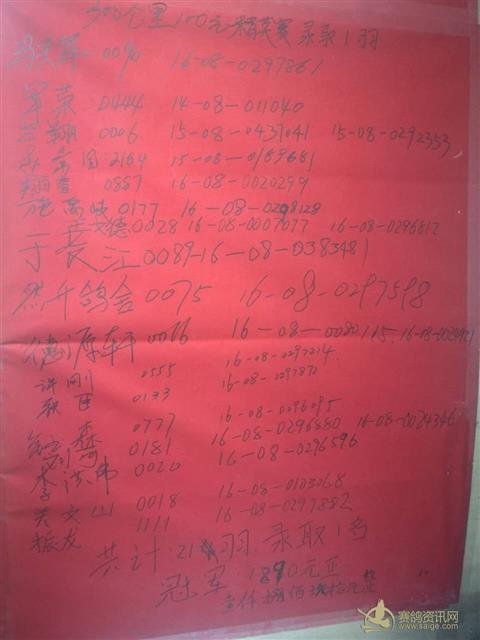 300公里100元精英赛 录取1羽
0090 16-08-0297861
军荣 0444 14-08-011040
翔 0006 15-08-0437041 15-08-0292353
2164 15-08-0189681
0887 16-08-0020299
施 0177 16-08-0298128
德 0028 16-08-0007077 16-08-0296812
于长江 0089-16-08-0383481
然升鸽舍 0095 16-08-0297598
德源轩 0066 16-08-0080115
许刚 0555 16-08-0297214
0133 16-08-029787
0777 16-08-0296095
0181 16-08-0296880 16-08-0024346
李洪伟 0020 16-08-0296596
关文山 0018 16-08-0103068
振龙 1111 16-08-0297882
共计:21羽 录取1名
冠军:1890元正
壹仟捌佰玖拾元正
赛鸽资讯网
www.saige.com